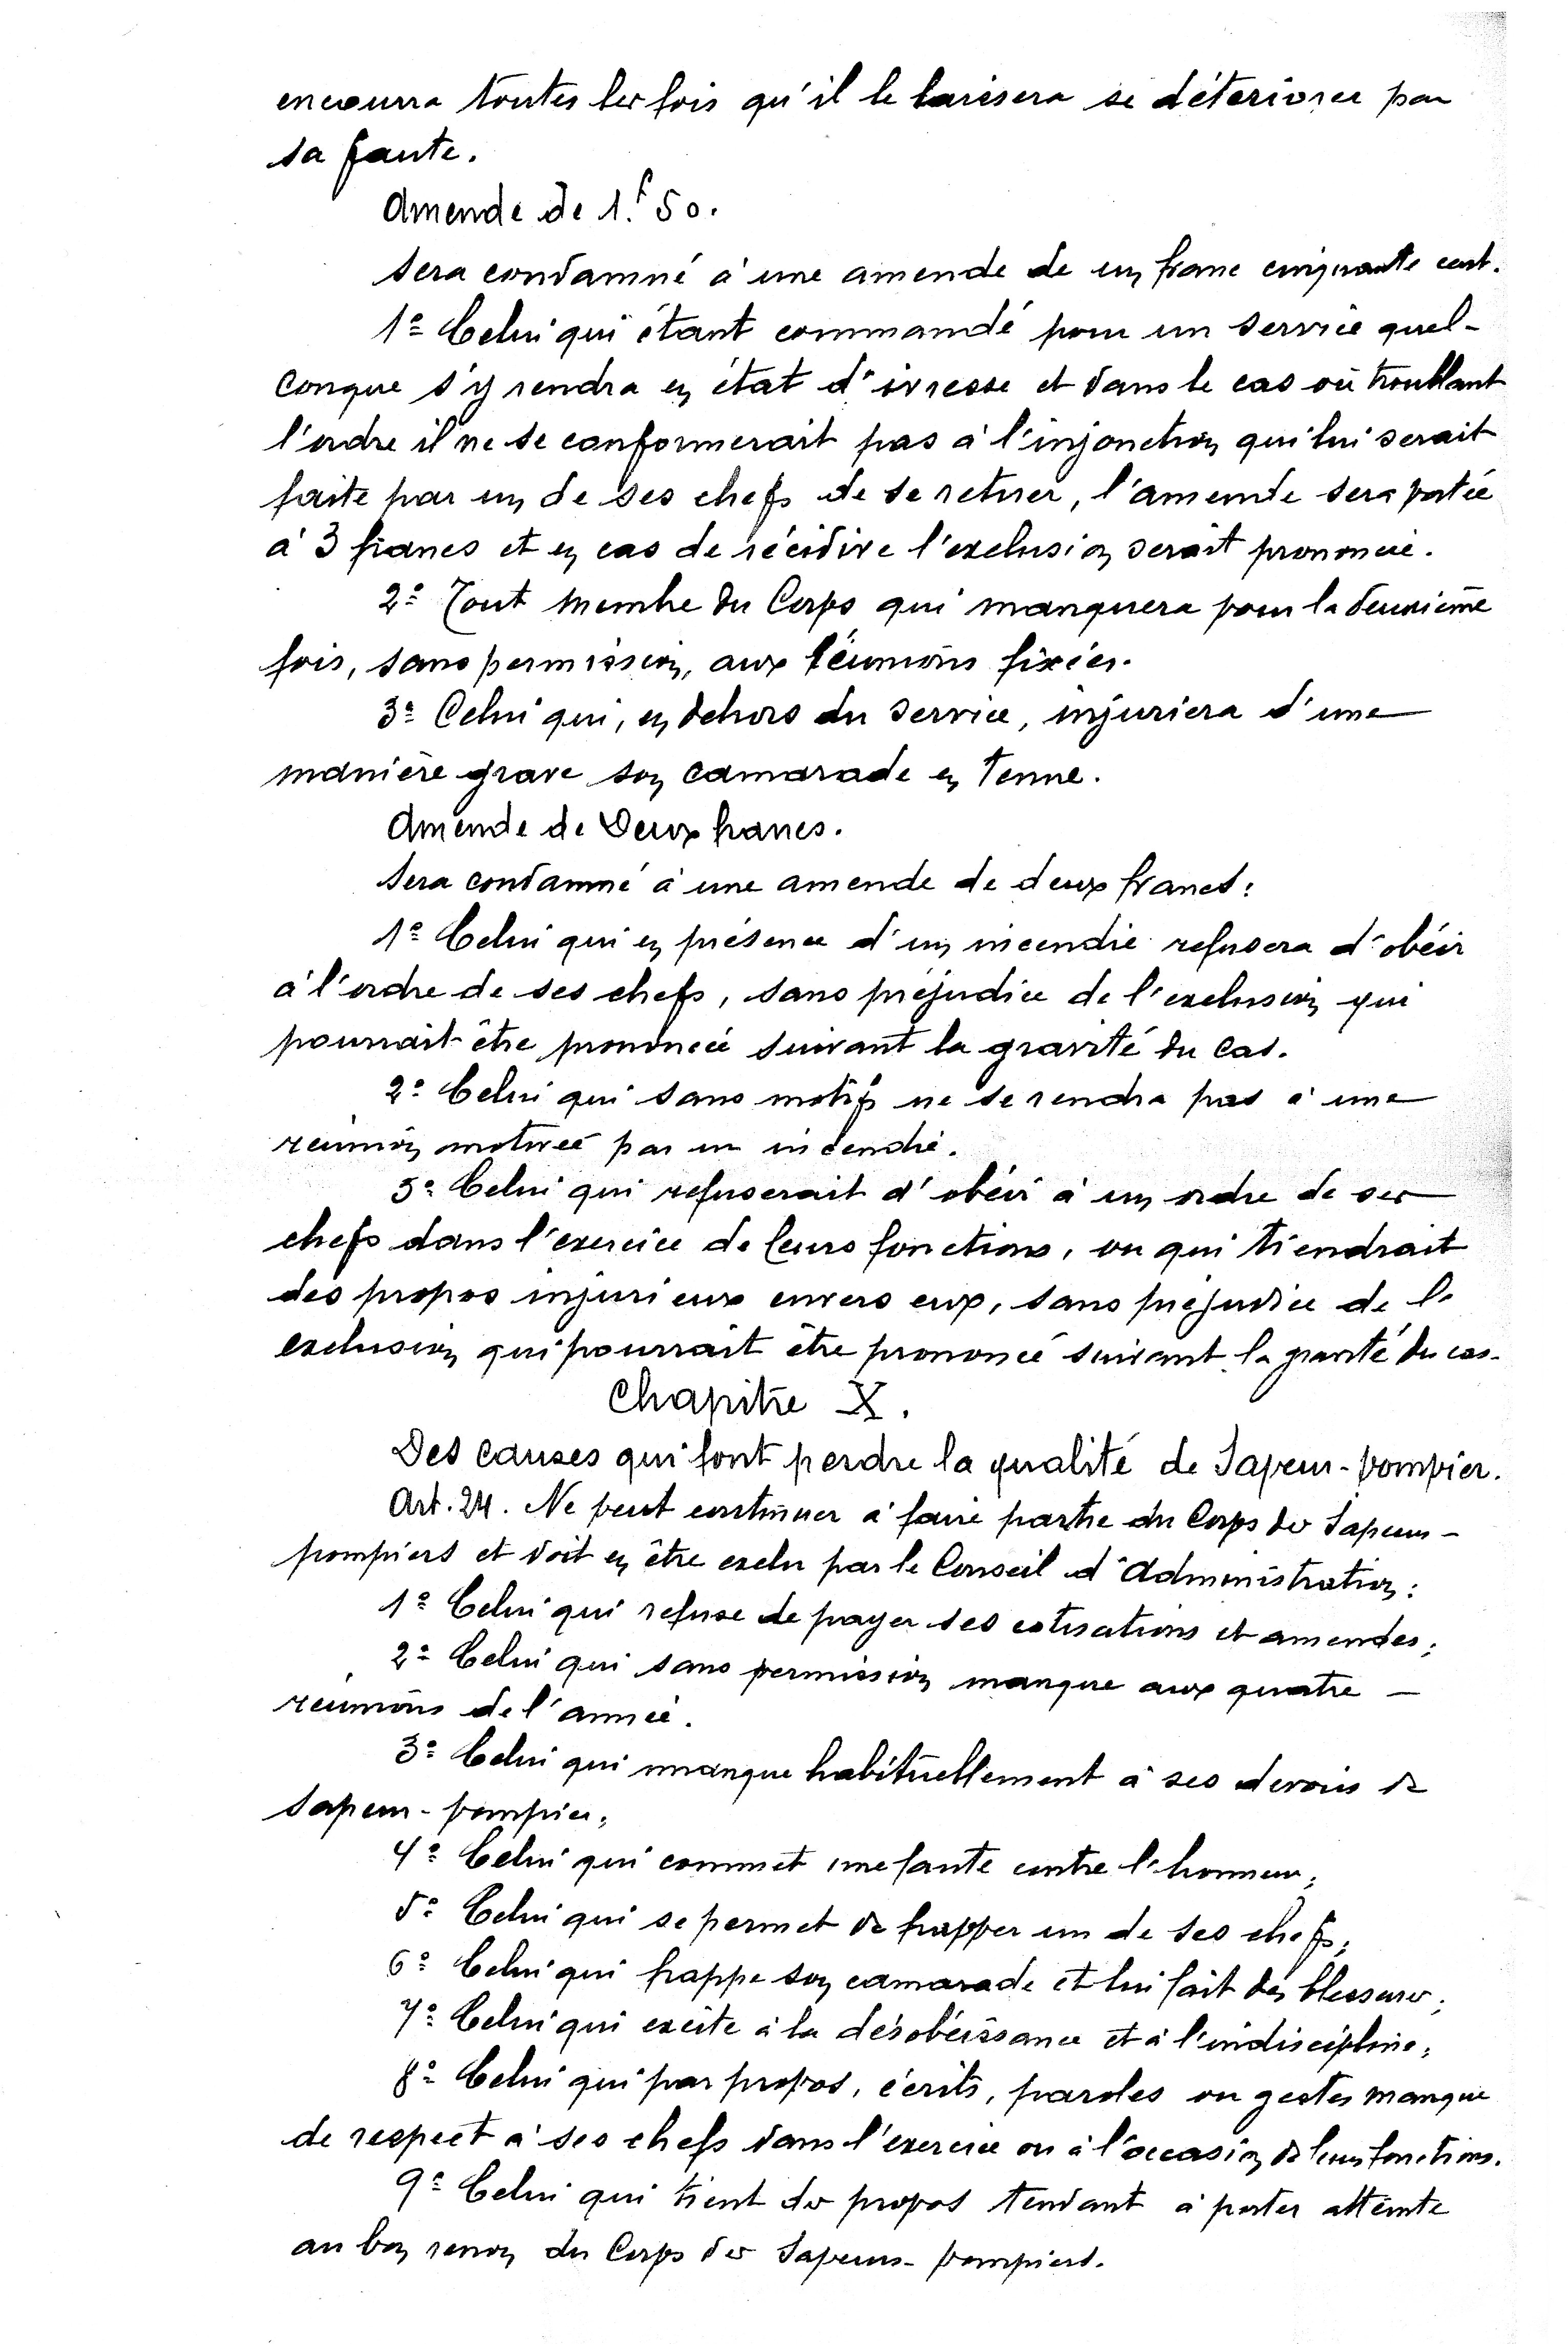 encourra toutes les fois qu'il le laissera se détériorer par
sa faute.
Amende de 1.f 50.
Sera condamné à une amende de un franc cinquante cent.
1º Celui qui étant commandé pour un service quel-
conque s'y rendra en état d'ivresse et dans le cas où troublant
l'ordre il ne se conformerait pas à l'injonction qui lui serait
faite par un de ses chefs de se retirer, l'amende sera portée
à 3 francs et en cas de récidive l'exclusion serait prononcée.
2º Tout membre du Corps qui manquera pour la deuxième
fois, sans permission, aux réunions fixées.
3º Celui qui, en dehors du service, injuriera d'une
manière grave son camarade en tenue.
Amende de Deux francs.
Sera condamné à une amende de deux francs:
1º Celui qui en présence d'un incendie refusera d'obéir
à l'ordre de ses chefs, sans préjudice de l'exclusion qui
pourrait être prononcée suivant la gravité du cas.
2º Celui qui sans motifs ne se rendra pas à une
réunion motivée par un incendie.
3º Celui qui refuserait d'obéir à un ordre de ses
chefs dans l'exercice de leurs fonctions, ou qui tiendrait
des propos injurieux envers eux, sans préjudice de l'
exclusion qui pourrait être prononcé suivant la gravité du cas.
Chapitre X.
Des causes qui font perdre la qualité de Sapeur-pompier.
Art. 24. Ne peut continuer à faire partie du Corps des Sapeurs-
pompiers et doit en être exclu par le Conseil d'Administration:
1º Celui qui refuse de payer ses cotisations et amendes;
2º Celui qui sans permission manque aux quatre -
réunions de l'année.
3º Celui qui manque habituellement à ses devoirs de
sapeur-pompier;
4º Celui qui commet une faute contre l'honneur;
5º Celui qui se permet de frapper un de ses chefs;
6º Celui qui frappe son camarade et lui fait des blessures;
7º Celui qui excite à la désobéissance et à l'indiscipline;
8º Celui qui par propos, écrits, paroles ou gestes manque
de respect à ses chefs dans l'exercice ou à l'occasion de leurs fonctions.
9º Celui qui tient des propos tendant à porter atteinte
au bon renom du Corps des Sapeurs-pompiers.